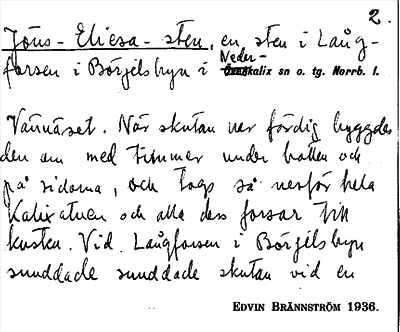 2.
Jöns-Eliesa-sten, en sten i Lång-
forsen i Börjelsbyn i Neder-
Överkalix sn o. tg. Norrb. l.
Vännäset. När skutan var färdig byggdes
den om med timmer under botten och
på sidorna, och togs så nerför hela
Kalixälven och alla dess forsar till
kusten. Vid Långforsen i Börjelsbyn
sunddade sunddade skutan vid en
EDVIN BRÄNNSTRÖM 1936.